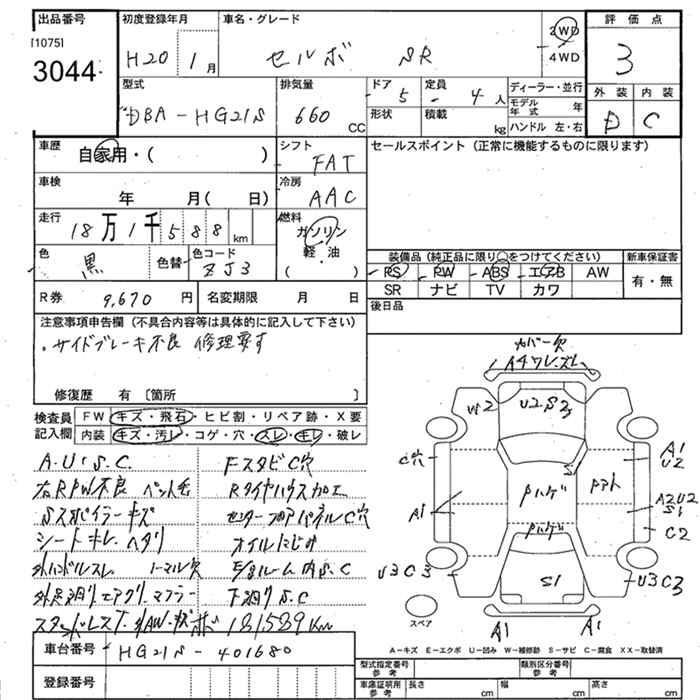 出品番号 初度登録年月 車名・グレード 評価点
[1075]
3044 H20 1月 セルボ SR 2WD 4WD 3
型式 排気量 ドア 定員 ディーラー・並行 外装 内装
DBA-HG21S 660 CC 5 4人 モデル年式 年 D C
形状 積載 kg ハンドル 左・右
車歴 自家用・( ) シフト FAT セールスポイント(正常に機能するものに限ります)
車検 年 月( 日) 冷房 AAC
走行 18万1千588 km 燃料 ガソリン 軽・油 ( )
色 黒 色替 色コード ZJ3
装備品(純正品に限り○をつけてください) 新車保証書
PS PW ABS エアB AW 有・無
SR ナビ TV カワ
R券 9,670円 名変期限 月 日 後日品
注意事項申告欄(不具合内容等は具体的に記入して下さい)
・サイドブレーキ不良 修理要す
修復歴 有〔箇所 〕
検査員記入欄 FW キズ・飛石・ヒビ割・リペア跡・X要
内装 キズ・汚レ・コゲ・穴・スレ・キレ・破レ
A・U・S・C FスタビC穴
右RPW不良 ペット毛 Rタイヤハウス加工
Sスポイラーキズ センターフロアパネルC穴
シートキレ、ヘタリ オイルにじみ
外ハンドルスレ ノーマル欠 E/gルーム内S.C
下廻りS.C
スタッドレスT. 181589Km
カバー欠
A4ワレ.ズレ
W2 U2.S2
C穴 S A1 U2
A1 Pハゲ Pアト A2U2 S1
Pハゲ C2
U3C3 S1 U3C3
スペア A1 A1
A-キズ E-エクボ U-凹み W-補修跡 S-サビ C-腐食 XX-取替済
車台番号 HG21S-401680
登録番号
型式指定番号 参考 類別区分番号 参考
車庫証明用 参考 長さ cm 幅 cm 高さ cm